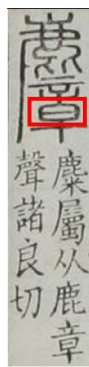 麞
麋屬从鹿章
聲諸良切